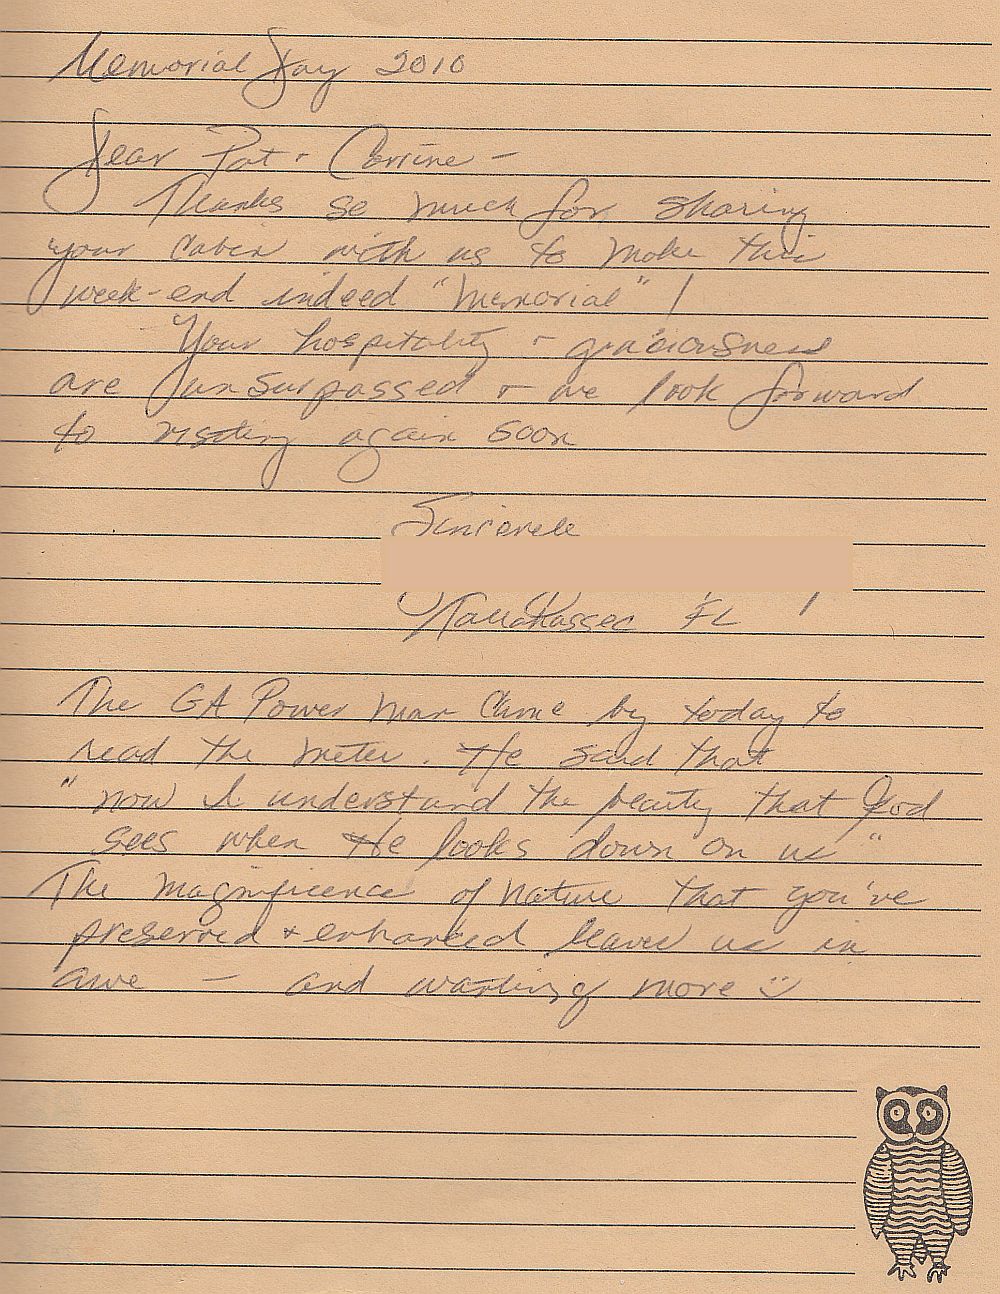 Memorial Day 2010
Dear Pat + Corrine -
Thanks so much for sharing
your cabin with us to make this
week-end indeed "memorial" !
Your hospitality + graciousness
are unsurpassed + we look forward
to visiting again soon
Sincerele
Tallahassee FL
The GA Power man came by today to
read the meter. He said that
"now I understand the beauty that God
sees when He looks down on us"
The magnificence of nature that you've
preserved + enhanced leaves us in
awe - and wanting more ☺